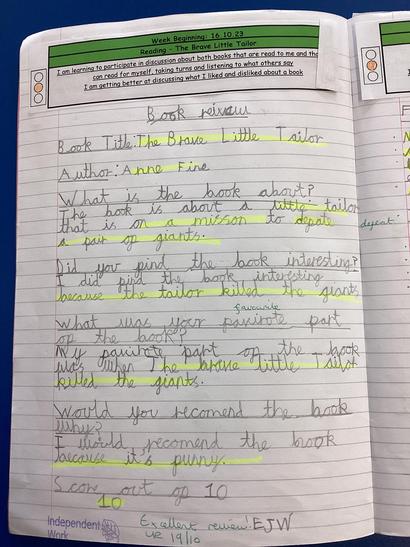 Week Beginning: 16.10.23
Reading - The Brave Little Tailor
I am learning to participate in discussion about both books that are read to me and tho
can read for myself, taking turns and listening to what others say
I am getting better at discussing what I liked and disliked about a book
Book reivew
Book Title: The Brave Little Tailor
Author: Anne Fine
What is the book about?
The book is about a little tailor
that is on a misson to depate
defeat
a pair op giants.
Did you pind the book interesting?
I did pind the book interesting
because the tailor killed the giants
favourite
What was your pavirote part
op the book?
My pavirote part op the book
was when The brave little Tailor
killed the giants.
Would you recomend the book
Why?
I would recomend the book
because it's punny.
Score out op 10
10
Independent
Work
Excellent review! EJW
LR 19/10